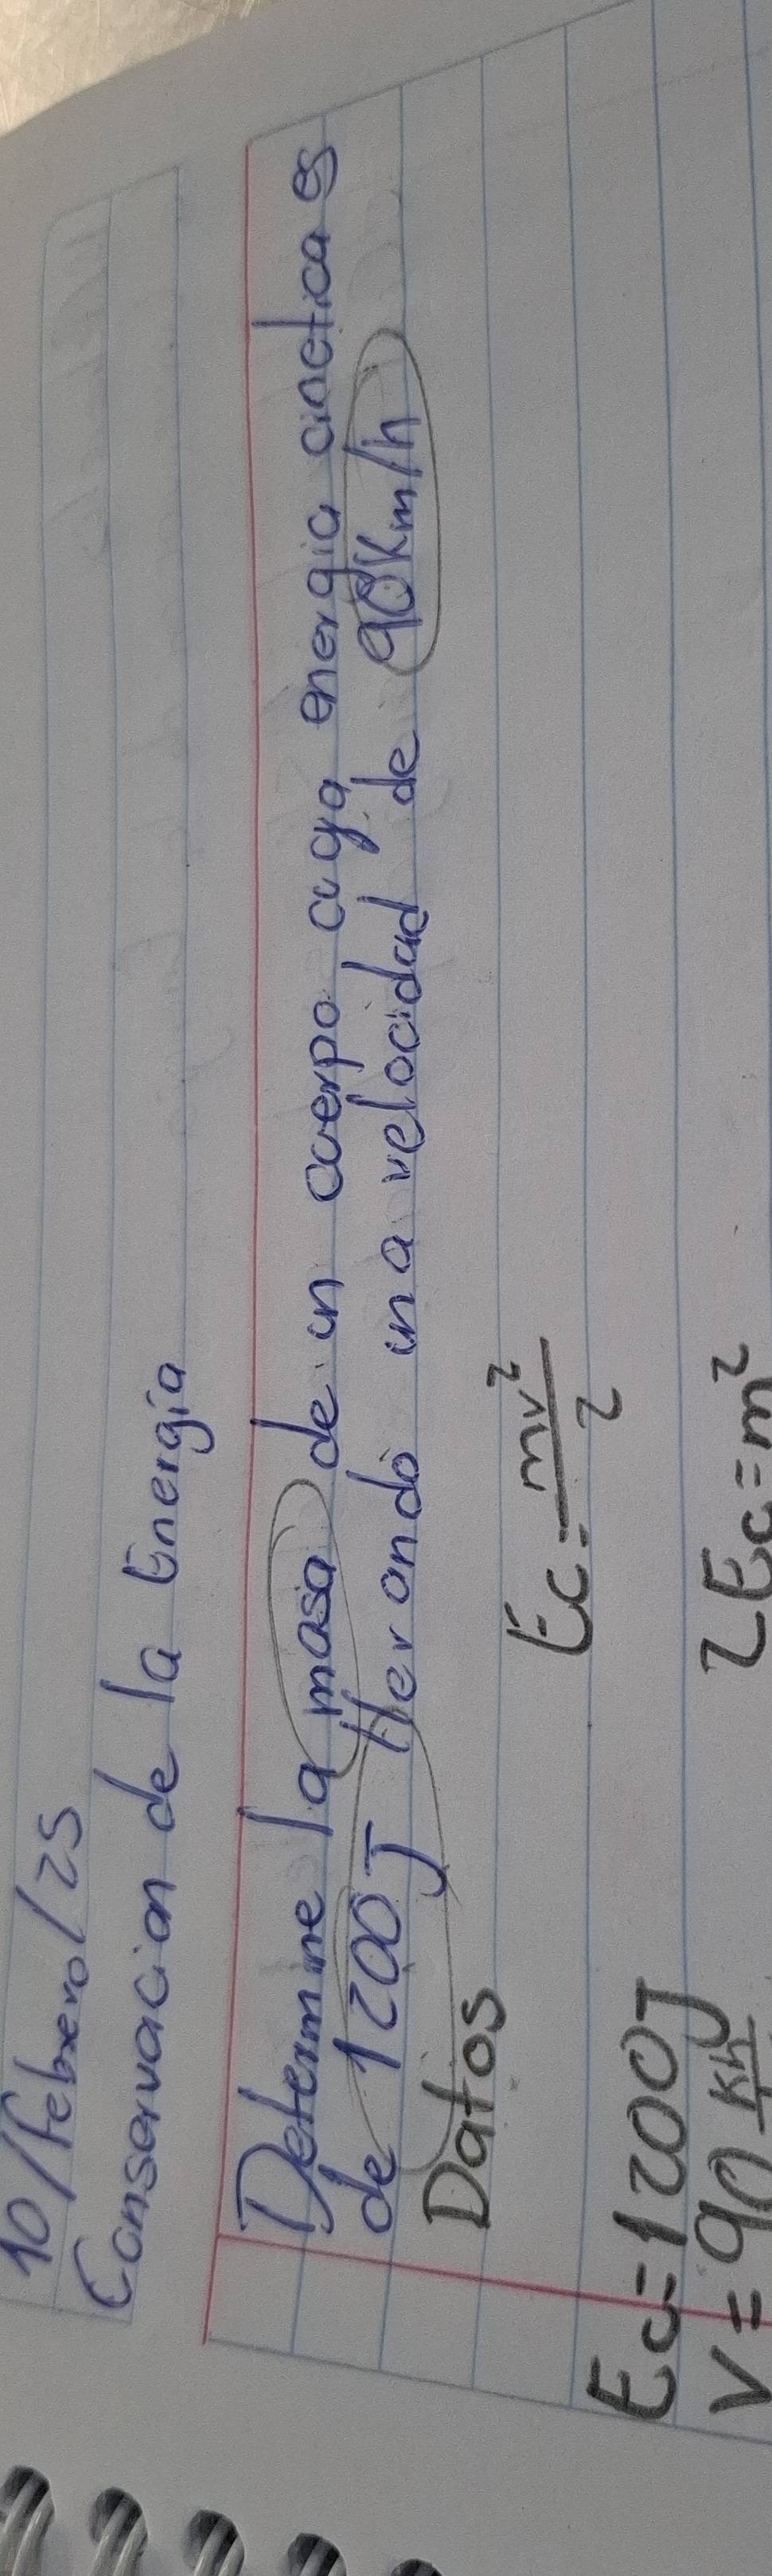 10/febrero/25
Conservacion de la Energía
Determine la masa de un cuerpo cuya energia cinetica es
de 1200J llevando una velocidad de 90Km/h
Datos
Ec=mv²/2
Ec=1200J
2Ec=m²
V=90